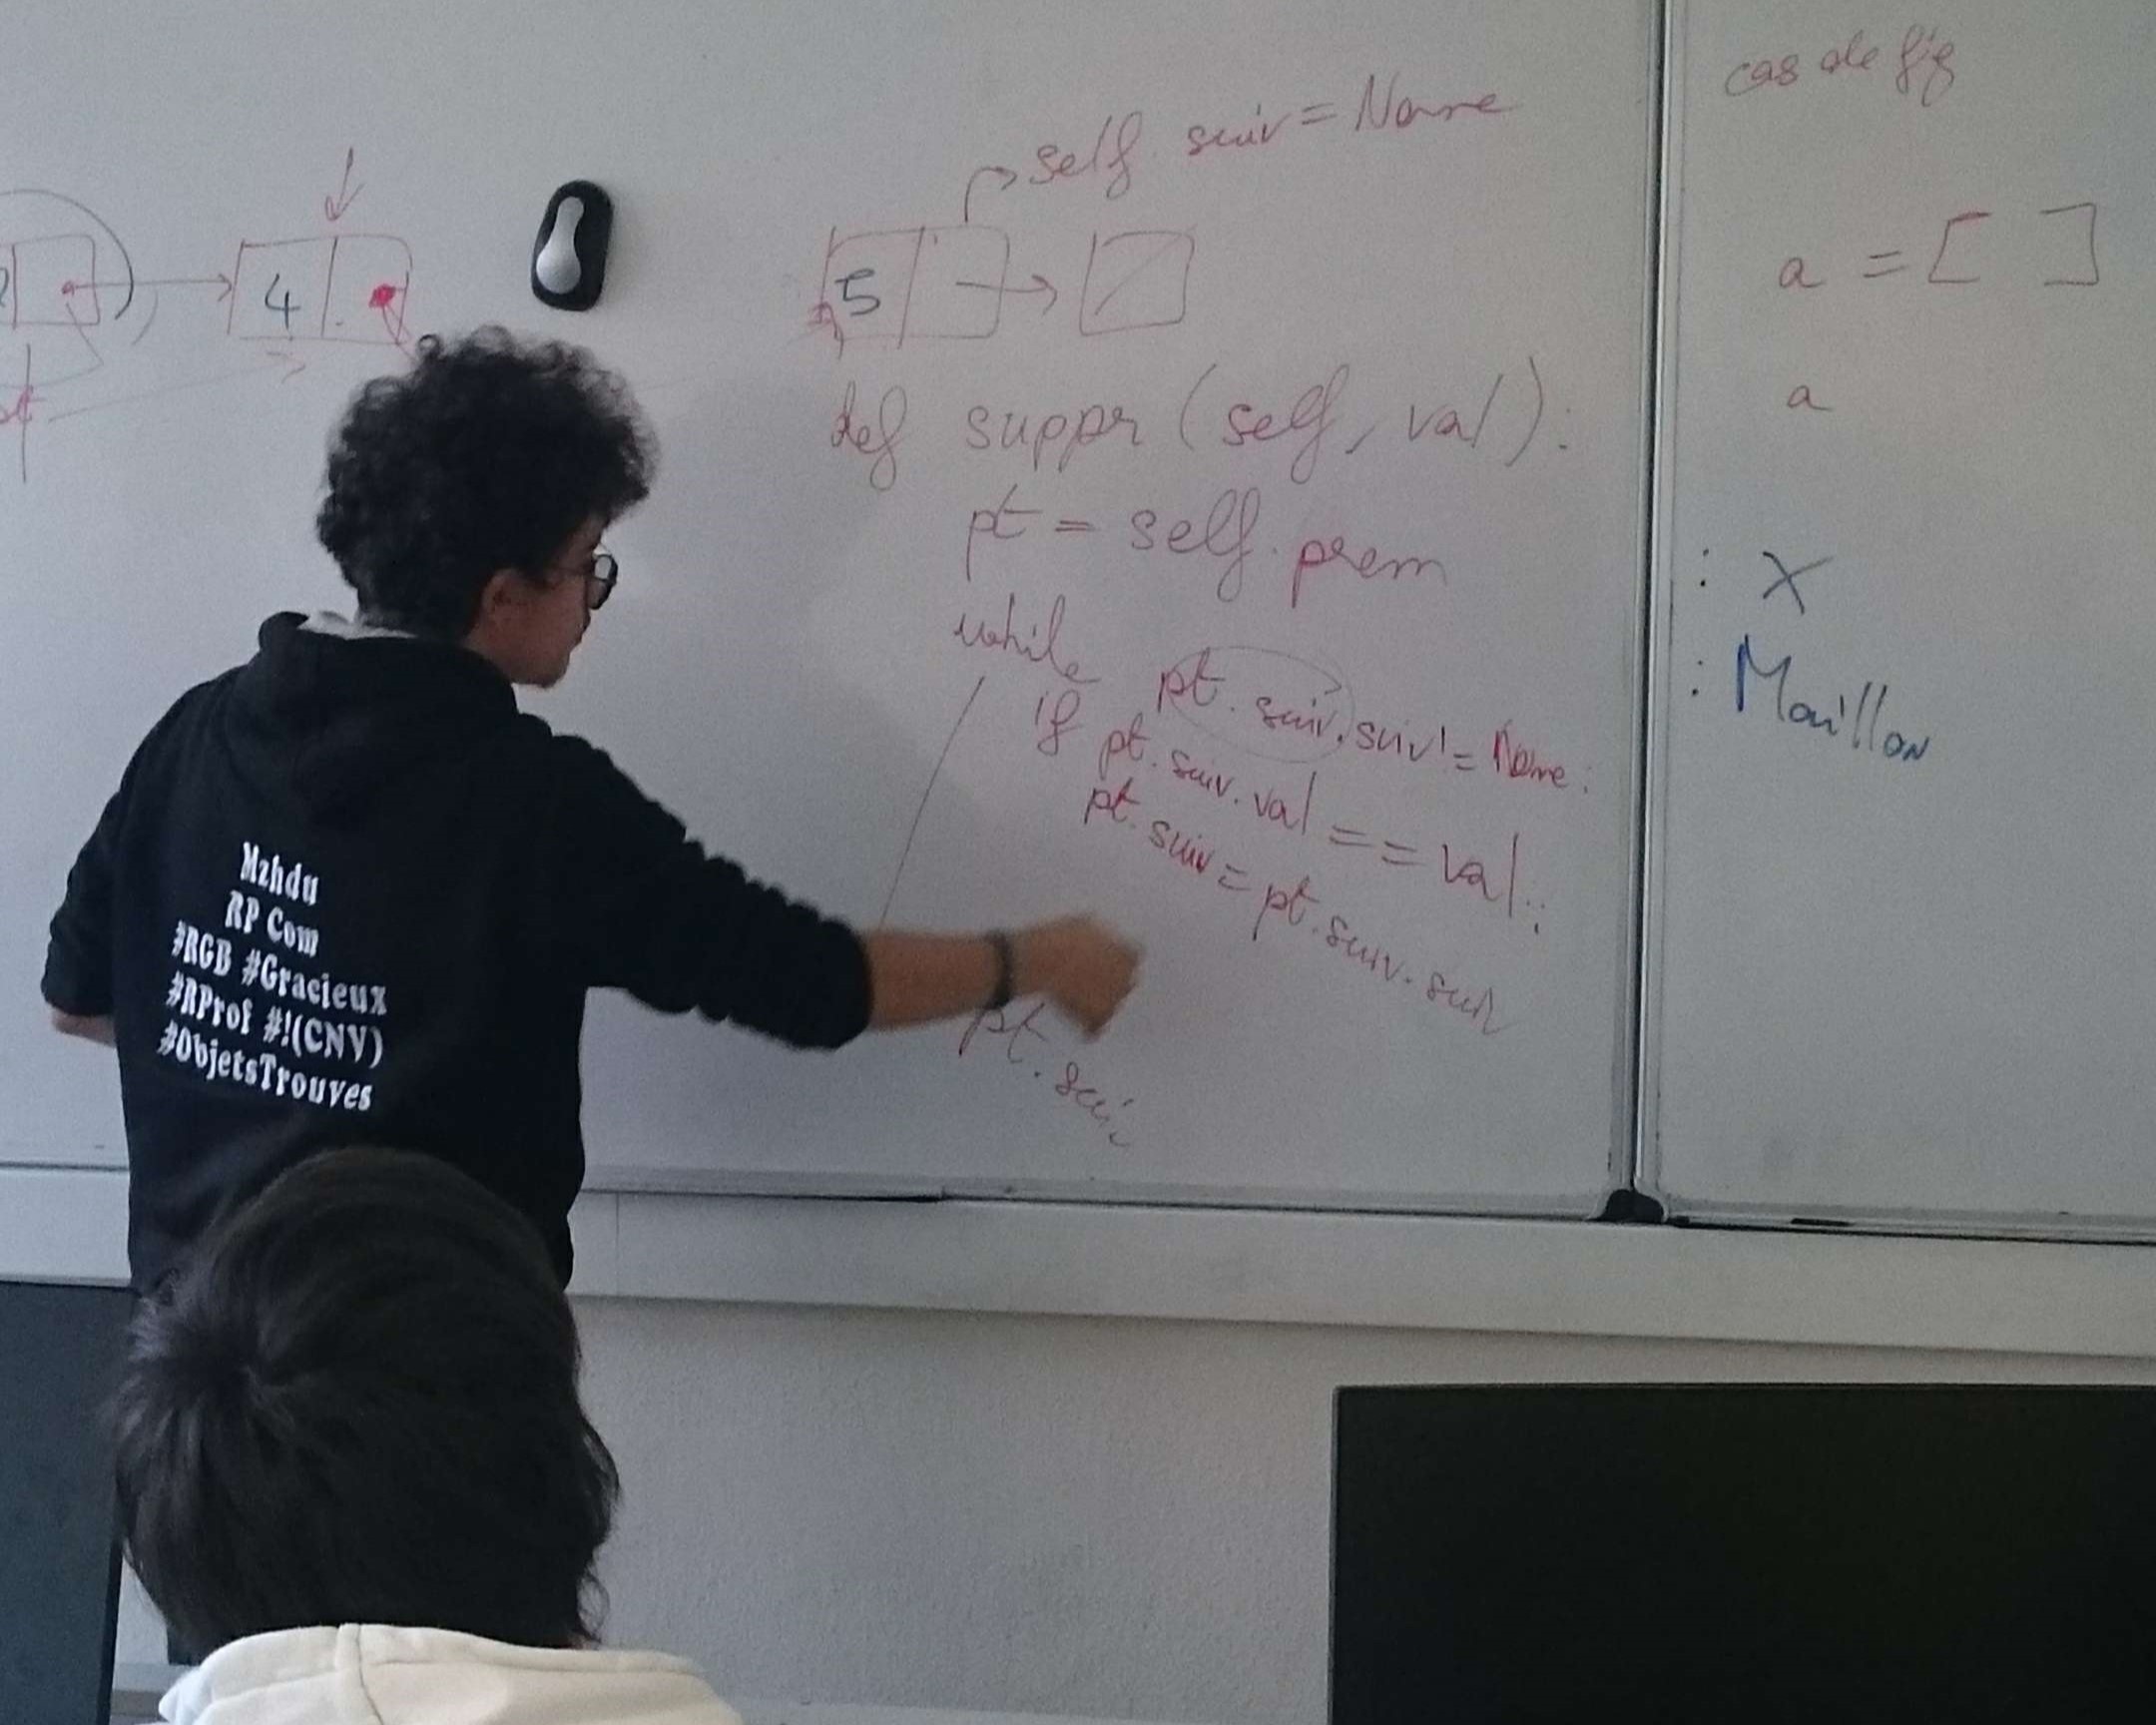 4
self.suiv = None
5
def suppr (self, val):
pt = self.prem
while pt.suiv.suiv != None:
if pt.suiv.val == val:
pt.suiv = pt.suiv.suiv
pt.suiv
cas de fig
a = [ ]
a
: X
: Maillon
Mzhdu
RP Com
#RGB #Gracieux
#RProf #!(CNV)
#ObjetsTrouves